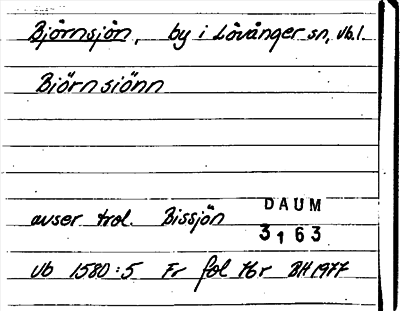 Björnsjön, by i Lövånger sn, Vb.l.
Biörnsiönn
avser trol. Bissjön
DAUM
3163
Vb 1580:5 Fr fol 76r BH 1977